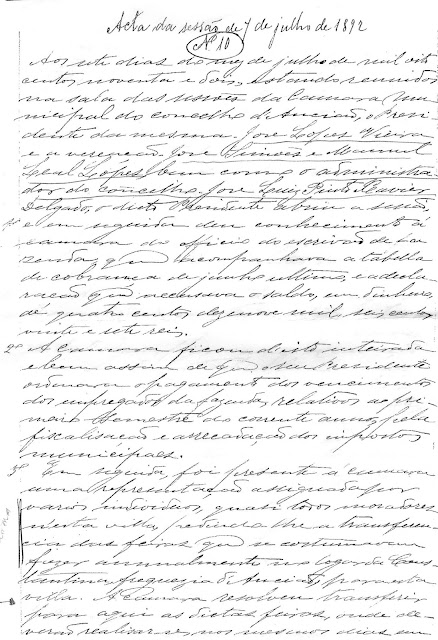 Acta da sessão de 7 de julho de 1892
Nº 10
Aos sete dias do mez de julho de mil oito
centos noventa e dois, estando reunidos
na sala das sessões da Camara Mu-
nicipal do concelho de Ancião, o Presi-
dente da mesma José Lopes Vieira
e os vereação José Simões e Manuel
Leal Lopes, bem como o administra-
dor do concelho José Luiz Pinto Xavier
Delgado, o dicto Presidente abriu a sessão,
1º e em seguida deu conhecimento á
camara do officio do escrivão de fa-
zenda, que acompanhava a tabella
de cobrança de junho ultimo, e a decla-
ração que accusava o saldo, em dinheiro,
de quatro centos dezenove mil, seis centos
vinte e sete reis.
2º A Camara ficou d'isto inteirada
e bem assim de que o seu Presidente
ordenara o pagamento dos vencimentos
dos empregados da fazenda, relativos ao pri-
meiro semestre do corrente anno, pela
fiscalisação e arrecadação dos impostos
municipaes.
3º Em seguida, foi presente á camara
uma representação assignada por
varios individuos, quasi todos moradores
nesta villa, pedindo-lhe a transferen-
cia das feiras que se costumavam
fazer annualmente no logar da Cons-
tantina, freguezia de Ancião, para esta
villa. A Camara resolveu transferir
para aqui as dictas feiras, onde de-
verão realizar-se, nos mesmos dias, em